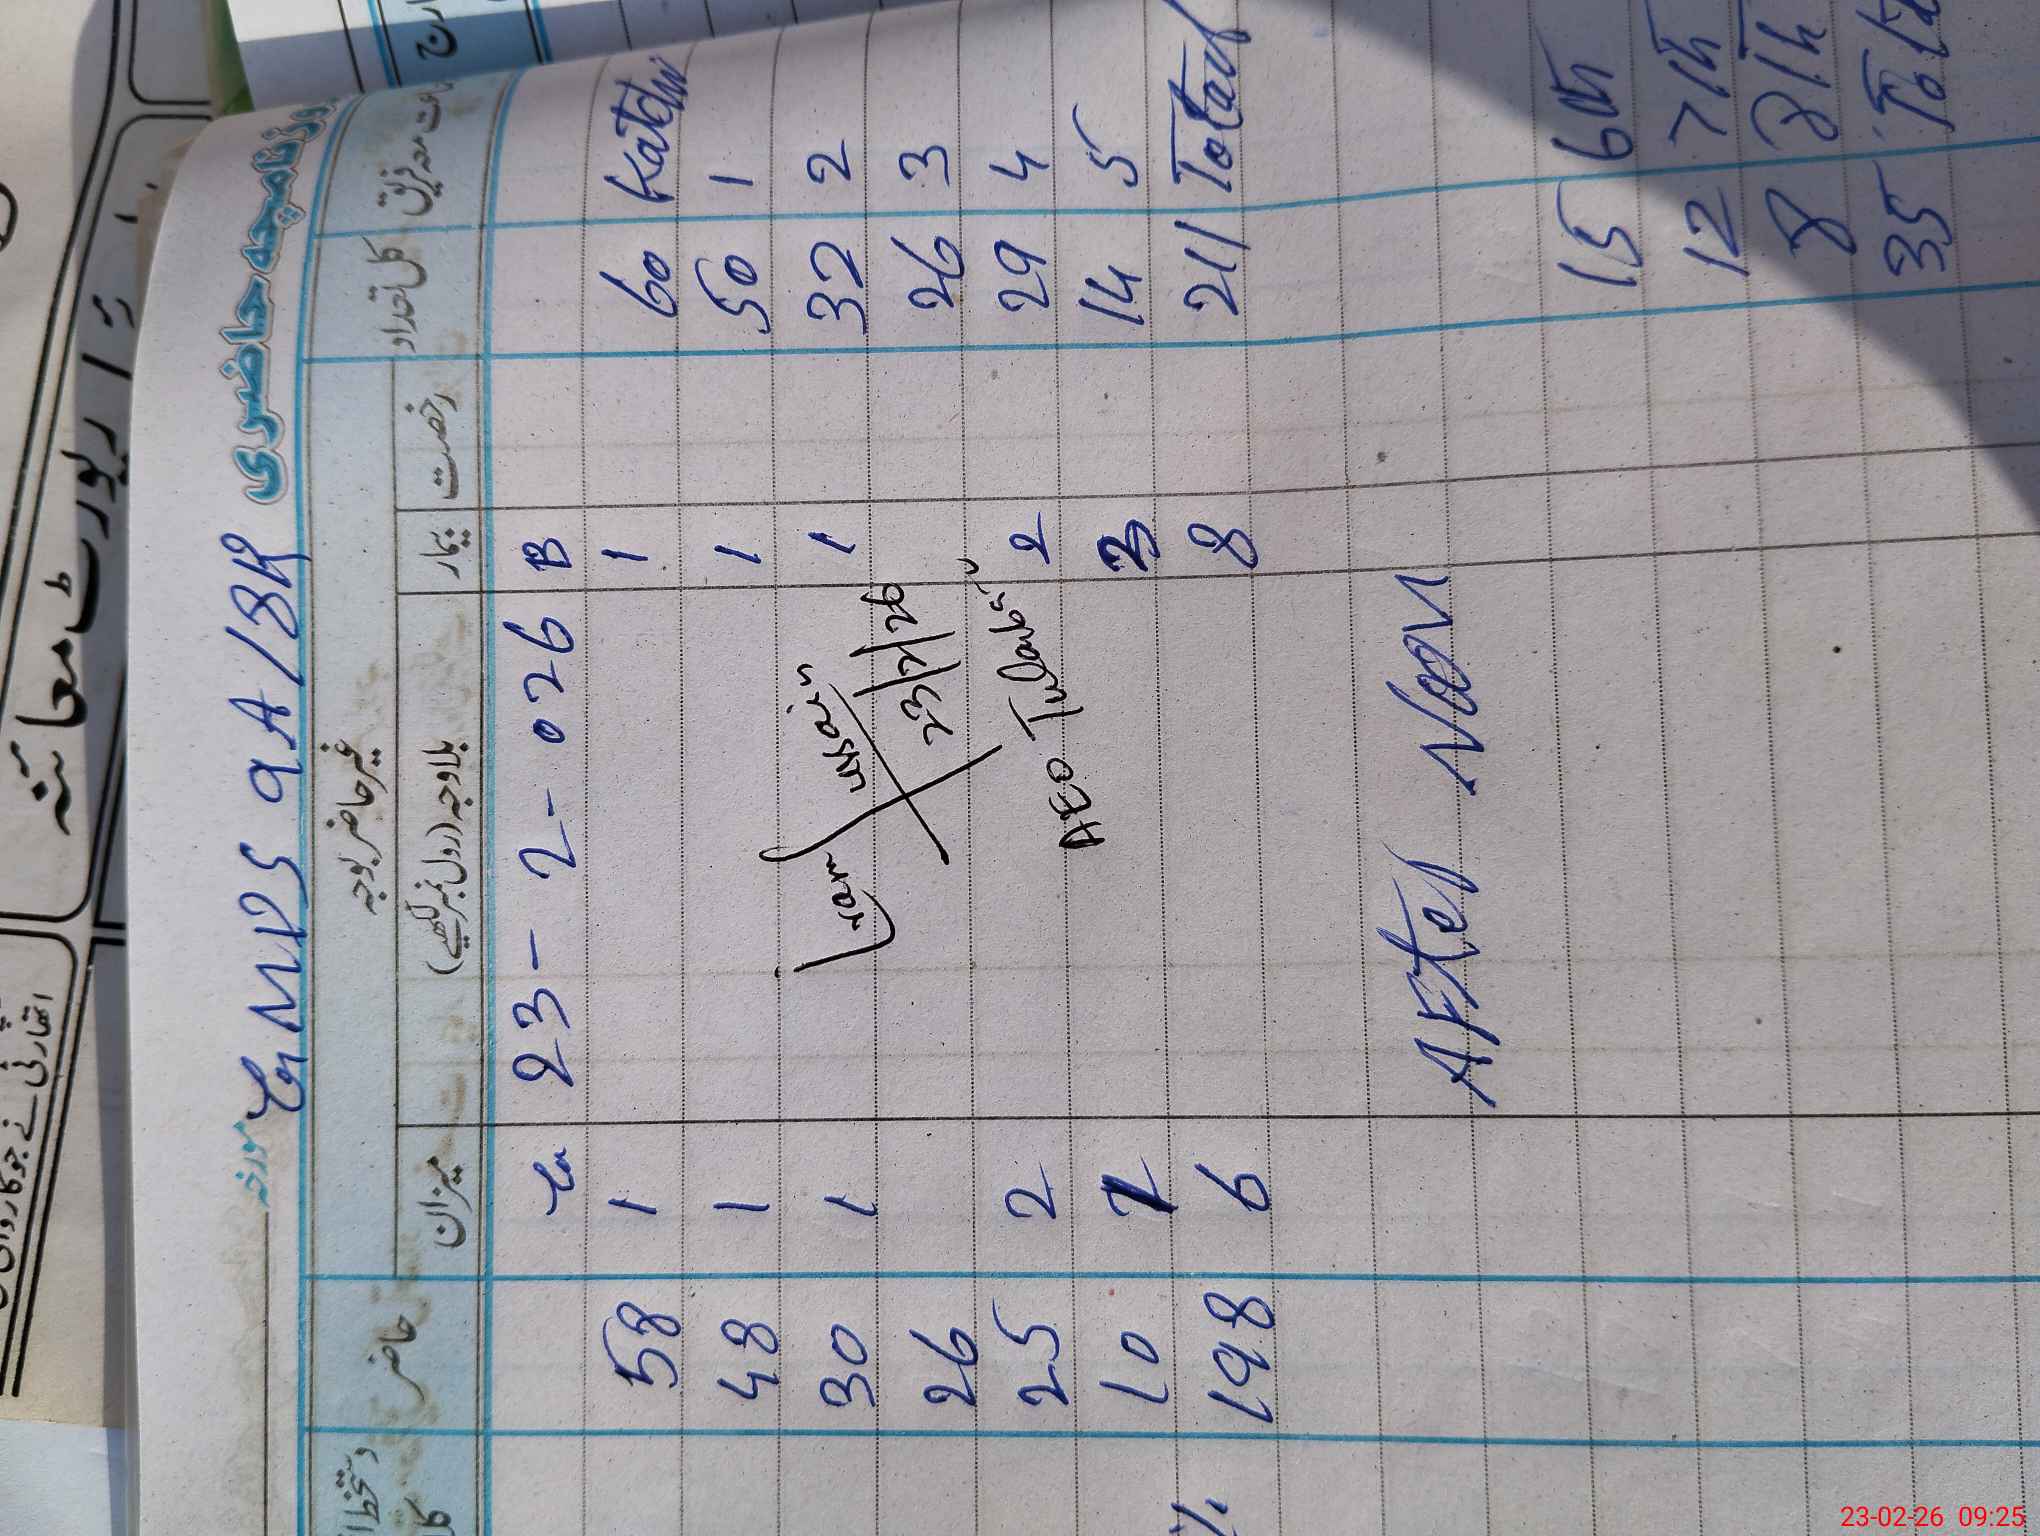 رپورٹ معائنہ
روزنامچہ حاضری
مورخہ
GMPS 9A/8R
جماعت معہ فریق
کل تعداد
غیر حاضر بوجہ
رخصت
بیمار
بلاوجہ (رول نمبر لکھیے)
میزان
حاضر
دستخط
B 23-2-026
Katchi 60 1 1 58
1 50 1 1 48
2 32 1 1 30
3 26 26
4 29 2 2 25
5 14 3 1 10
Total 211 8 6 198
23/2/26
AEO
After Noon
6th 15
7th 12
8th 8
Total 35
23-02-26 09:25